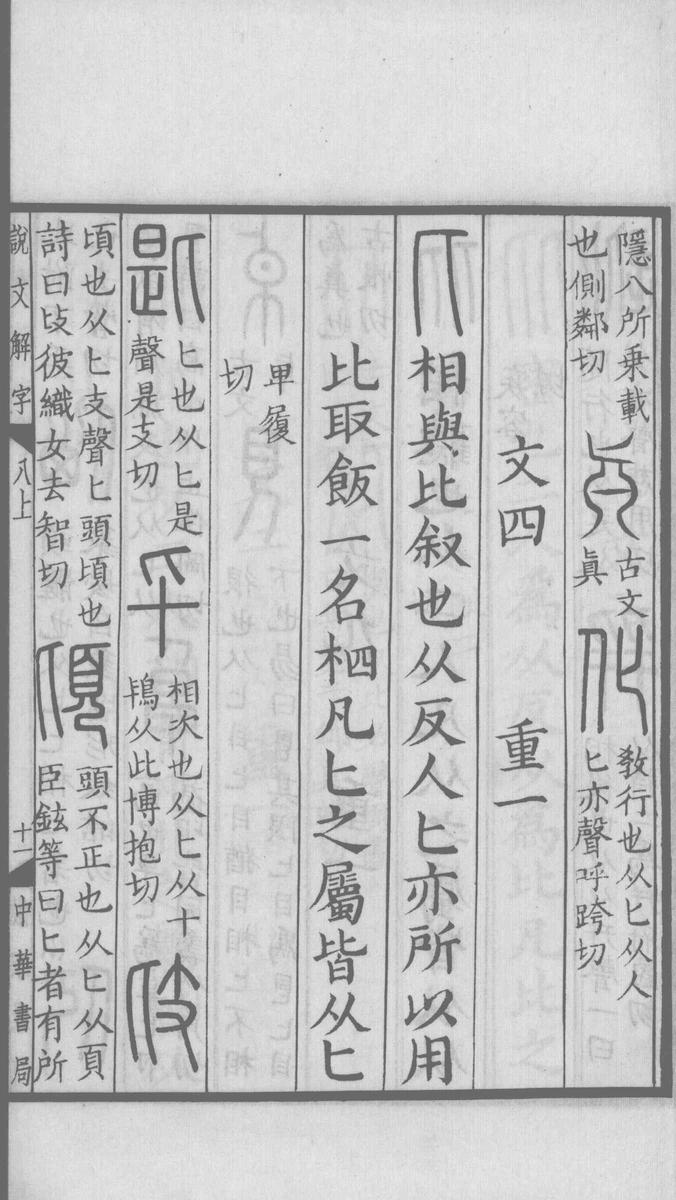 隱八所乗載
也側鄰切
古文
眞
化 敎行也从匕从人
匕亦聲呼跨切
文四 重一
匕 相與比叙也从反人匕亦所以用
比取飯一名柶凡匕之屬皆从匕
卑履
切
匙 匕也从匕是
聲是支切
𠤏 相次也从匕从十
鴇从此博抱切
𠤕
頃也从匕支聲匕頭頃也
詩曰𠤕彼織女去智切
頃 頭不正也从匕从頁
臣鉉等曰匕者有所
說文解字 八上 十一 中華書局